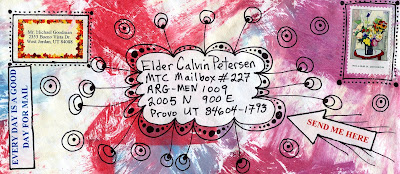 Mr. Michael Goodman
2353 Buena Vista Dr.
West Jordan, UT 84088
EVERY DAY IS A GOOD
DAY FOR MAIL
Elder Calvin Petersen
MTC Mailbox #227
ARG-MEN 1009
2005 N 900 E
Provo UT 84604-1793
SEND ME HERE